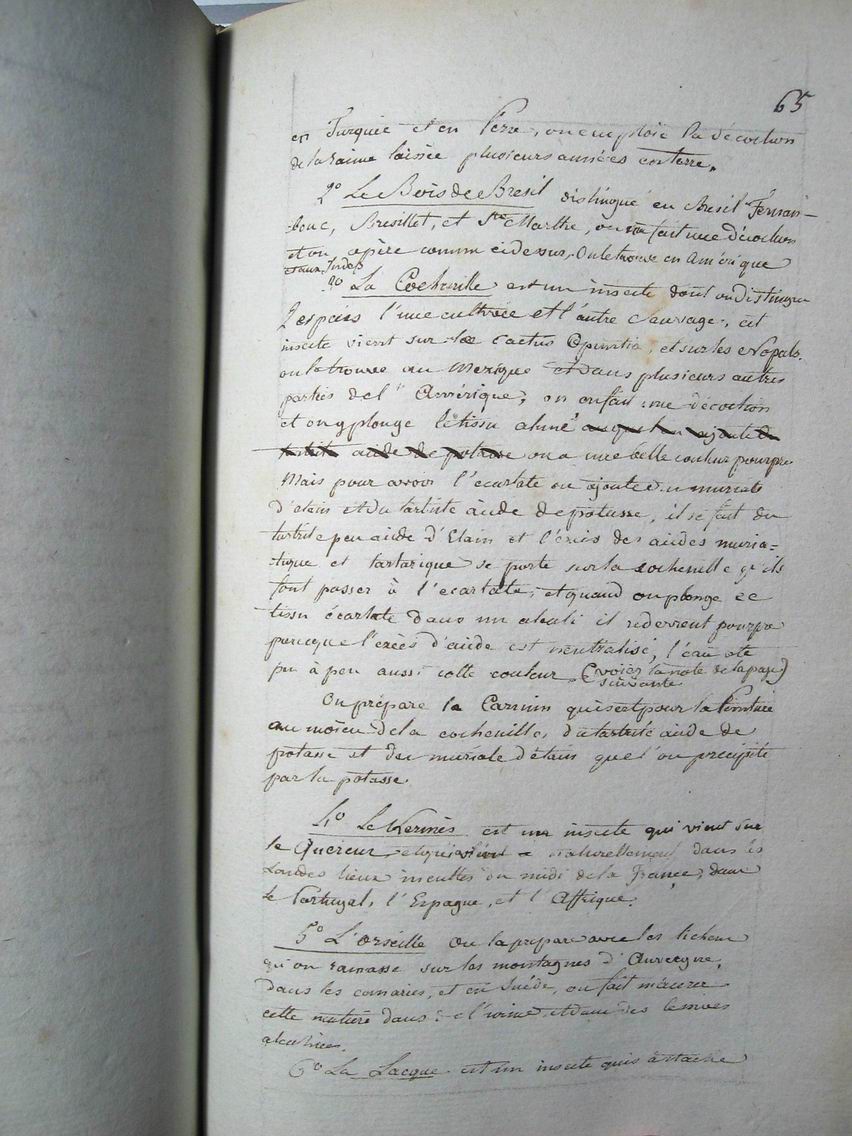 65
en Turquie et en Perse, on emploie la décoction
de la racine laissée plusieurs années en terre.
2o Le Bois de Bresil distingué en Bresil Fernan-
-bouc, Bresillet, et Ste Marthe, on en fait une décoction
et on opère comme cidessus. On le trouve en Amérique
et aux Indes
3o La Cochenille est un insecte dont on distingue
2 espèces l'une cultivée et l'autre sauvage, cet
insecte vient sur le cactus Opuntia, et sur les Nopals.
on la trouve au Mexique et dans plusieurs autres
parties de l'Amérique, on en fait une décoction
et on y plonge le tissu aluné
acide de potasse on a une belle couleur pourpre
Mais pour avoir l'ecarlate on ajoute du muriate
d'etain et du tartrite acide de potasse, il se fait du
tartrite peu acide d'Etain et l'exces des acides muria-
-tique et tartarique se porte sur la cochenille qu'ils
font passer à l'ecarlate, et quand on plonge ce
tissu écarlate dans un alcali il redevient pourpre
parceque l'excès d'acide est neutralisé, l'eau ote
peu à peu aussi cette couleur (voiez la note de la page)
suivante
On prépare le Carmin qui sert pour la Peinture
au moien de la cochenille, du tartrite acide de
potasse et du muriate d'etain que l'on precipite
par la potasse.
4o Le Kermès est un insecte qui vient sur
le Quercus naturellement dans les
Landes lieux incultes du midi de la France, dans
le Portugal, l'Espagne, et l'Affrique.
5o L'orseille on la prepare avec les lichens
qu'on ramasse sur les montagnes d'Auvergne,
dans les canaries, et en Suède, on fait macerer
cette matière dans de l'urine et dans des lessives
alcalines.
6o La Lacque est un insecte qui s'attache